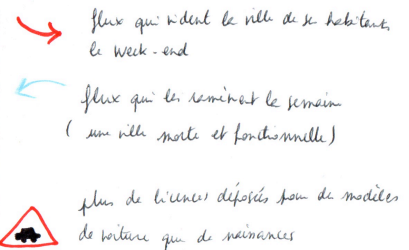 flux qui vident la ville de ses habitants
le week-end
flux qui les ramènent la semaine
( une ville morte et fonctionnelle )
plus de licences déposées pour de modèles
de voiture que de naissances